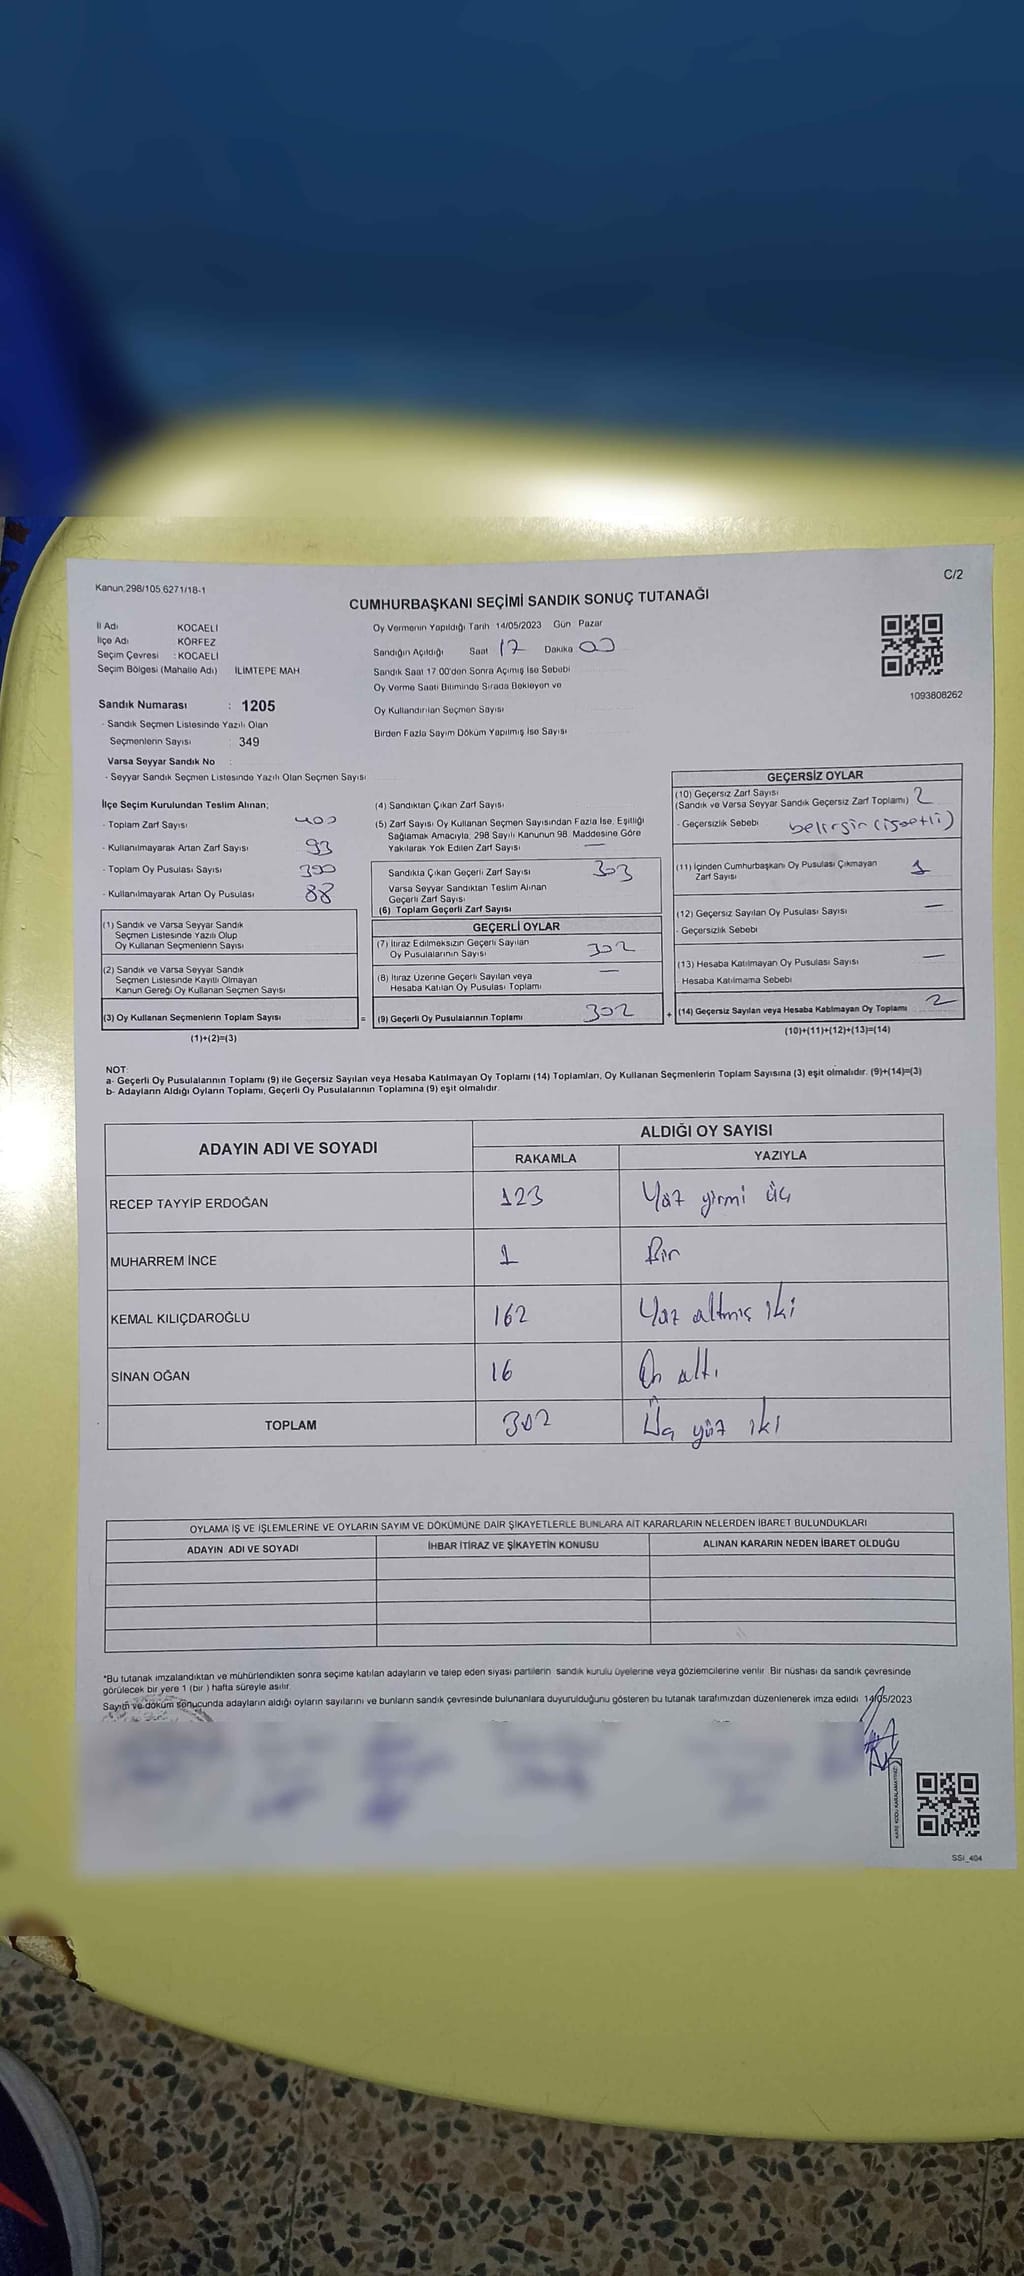 Kanun:298/105,6271/18-1
C/2
CUMHURBAŞKANI SEÇİMİ SANDIK SONUÇ TUTANAĞI
İl Adı KOCAELİ
İlçe Adı KÖRFEZ
Seçim Çevresi : KOCAELİ
Seçim Bölgesi (Mahalle Adı) İLİMTEPE MAH
Oy Vermenin Yapıldığı Tarih 14/05/2023 Gün Pazar
Sandığın Açıldığı Saat 17 Dakika 00
Sandık Saat 17 00'den Sonra Açılmış İse Sebebi
Oy Verme Saati Bitiminde Sırada Bekleyen ve
Oy Kullandırılan Seçmen Sayısı
Birden Fazla Sayım Döküm Yapılmış İse Sayısı
1093808262
Sandık Numarası : 1205
- Sandık Seçmen Listesinde Yazılı Olan
Seçmenlerin Sayısı : 349
Varsa Seyyar Sandık No
- Seyyar Sandık Seçmen Listesinde Yazılı Olan Seçmen Sayısı
İlçe Seçim Kurulundan Teslim Alınan;
- Toplam Zarf Sayısı 400
- Kullanılmayarak Artan Zarf Sayısı 93
- Toplam Oy Pusulası Sayısı
- Kullanılmayarak Artan Oy Pusulası 88
(1) Sandık ve Varsa Seyyar Sandık
Seçmen Listesinde Yazılı Olup
Oy Kullanan Seçmenlerin Sayısı
(2) Sandık ve Varsa Seyyar Sandık
Seçmen Listesinde Kayıtlı Olmayan
Kanun Gereği Oy Kullanan Seçmen Sayısı
(3) Oy Kullanan Seçmenlerin Toplam Sayısı
(1)+(2)=(3)
=
(4) Sandıktan Çıkan Zarf Sayısı
(5) Zarf Sayısı Oy Kullanan Seçmen Sayısından Fazla İse, Eşitliği
Sağlamak Amacıyla, 298 Sayılı Kanunun 98. Maddesine Göre
Yakılarak Yok Edilen Zarf Sayısı —
Sandıkta Çıkan Geçerli Zarf Sayısı 303
Varsa Seyyar Sandıktan Teslim Alınan
Geçerli Zarf Sayısı
(6) Toplam Geçerli Zarf Sayısı
GEÇERLİ OYLAR
(7) İtiraz Edilmeksizin Geçerli Sayılan
Oy Pusulalarının Sayısı 302
(8) İtiraz Üzerine Geçerli Sayılan veya
Hesaba Katılan Oy Pusulası Toplamı —
(9) Geçerli Oy Pusulalarının Toplamı 302
+
GEÇERSİZ OYLAR
(10) Geçersiz Zarf Sayısı
(Sandık ve Varsa Seyyar Sandık Geçersiz Zarf Toplamı) 2
- Geçersizlik Sebebi
(11) İçinden Cumhurbaşkanı Oy Pusulası Çıkmayan
Zarf Sayısı 1
(12) Geçersiz Sayılan Oy Pusulası Sayısı —
- Geçersizlik Sebebi
(13) Hesaba Katılmayan Oy Pusulası Sayısı —
Hesaba Katılmama Sebebi
(14) Geçersiz Sayılan veya Hesaba Katılmayan Oy Toplamı 2
(10)+(11)+(12)+(13)=(14)
NOT:
a- Geçerli Oy Pusulalarının Toplamı (9) ile Geçersiz Sayılan veya Hesaba Katılmayan Oy Toplamı (14) Toplamları, Oy Kullanan Seçmenlerin Toplam Sayısına (3) eşit olmalıdır. (9)+(14)=(3)
b- Adayların Aldığı Oyların Toplamı, Geçerli Oy Pusulalarının Toplamına (9) eşit olmalıdır.
ADAYIN ADI VE SOYADI
ALDIĞI OY SAYISI
RAKAMLA YAZIYLA
RECEP TAYYİP ERDOĞAN 123 Yüz yirmi üç
MUHARREM İNCE 1 Bir
KEMAL KILIÇDAROĞLU 162 Yüz altmış iki
SİNAN OĞAN 16 On altı
TOPLAM 302 Üç yüz iki
OYLAMA İŞ VE İŞLEMLERİNE VE OYLARIN SAYIM VE DÖKÜMÜNE DAİR ŞİKAYETLERLE BUNLARA AİT KARARLARIN NELERDEN İBARET BULUNDUKLARI
ADAYIN ADI VE SOYADI İHBAR İTİRAZ VE ŞİKAYETİN KONUSU ALINAN KARARIN NEDEN İBARET OLDUĞU
*Bu tutanak imzalandıktan ve mühürlendikten sonra seçime katılan adayların ve talep eden siyasi partilerin sandık kurulu üyelerine veya gözlemcilerine verilir. Bir nüshası da sandık çevresinde
görülecek bir yere 1 (bir ) hafta süreyle asılır.
Sayım ve döküm sonucunda adayların aldığı oyların sayılarını ve bunların sandık çevresinde bulunanlara duyurulduğunu gösteren bu tutanak tarafımızdan düzenlenerek imza edildi. 14/05/2023
KARE KODU KARALAMAYINIZ
SSİ_404